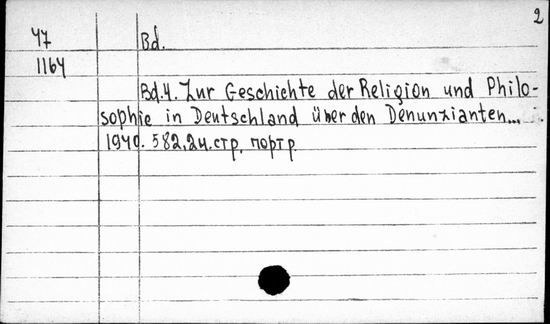 2
47 Bd.
1164
Bd.4. Zur Geschichte der Religion und Philo-
sophie in Deutschland über den Denunzianten...
1940. 582,2н.стр, портр